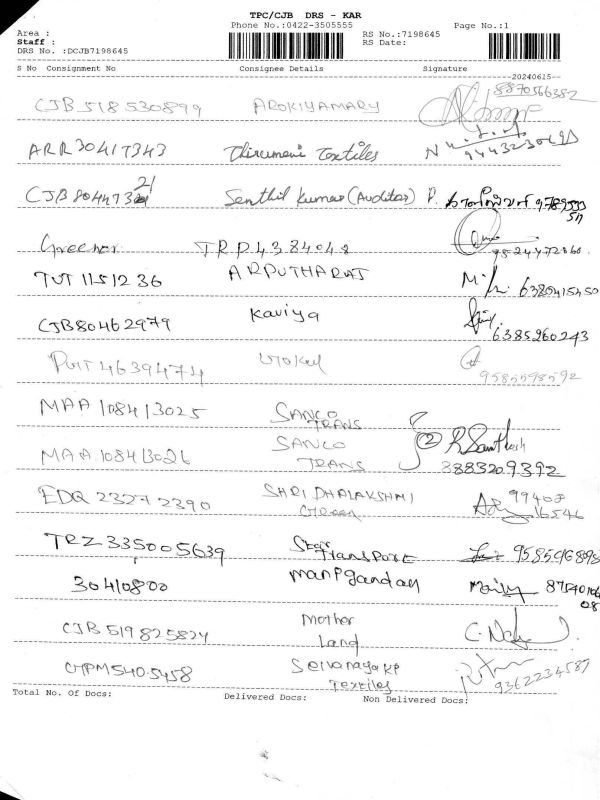 TPC/CJB DRS - KAR
Phone No.:0422-3505555 Page No.:1
Area :
Staff : RS No.:7198645
DRS No. :DCJB7198645 RS Date:
S No Consignment No Consignee Details Signature
20240615
CJB 518530899 AROKIYAMARY 8870566382
ARR30417343 Thirumani Textiles
CJB8044732 21 Senthil Kumar (Auditor)
TRP43 84048 9524472860
TUT 1151236 ARPUTHARAJ 6380415450
CJB80462979 Kaviya 6385260243
46394774 Gokul 9585598592
MAA 108413025 SANCO
TRANS
MAA 108413026 SANCO 2 R Santhosh
TRANS 8883209392
EDQ 232722390 SHRI DHALAKSHMI 99408
Green 16546
TRZ 335005639 Star
Transport
30410800 87540106
08
CJB 519825824 Mother
Land
5405458 Selvanayaki
Textiles 9362234587
Total No. Of Docs: Delivered Docs: Non Delivered Docs: